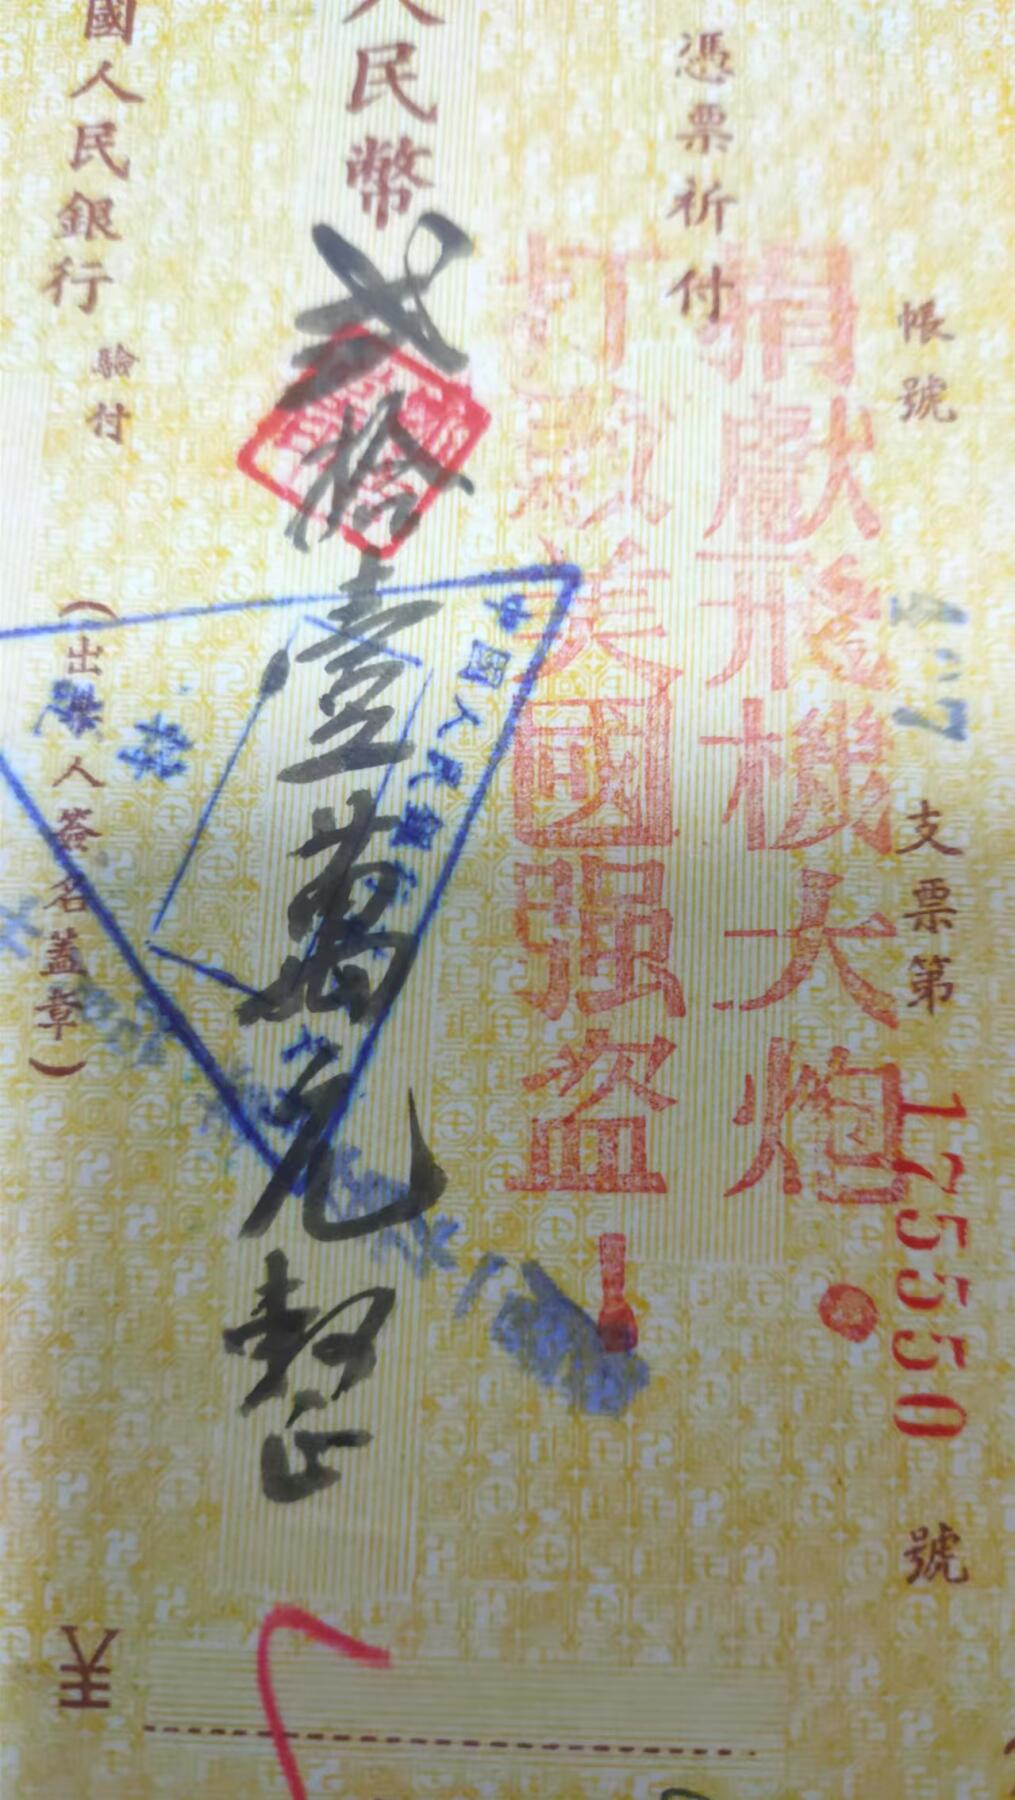 帳號
支票第 175550 號
憑票祈付
捐獻飛機大炮。
打敗美國强盗！
人民幣 貳拾壹萬元整
中國人民銀行
國人民銀行 驗付
（出票人簽名蓋章）
¥